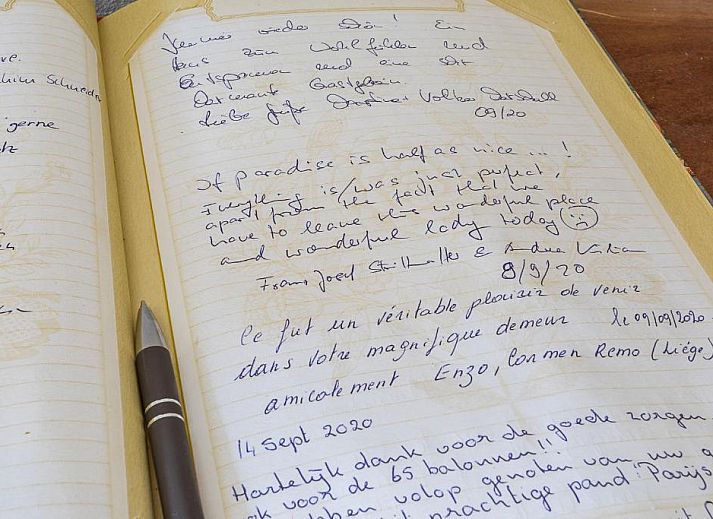 ve.
igerne
Immer wieder schön! Ein
Haus zum Wohlfühlen und
Entspannen und eine
Gastgeberin.
Liebe Grüße Volker
09/20
If paradise is half as nice ... !
Everything is/was just perfect,
apart from the fact that we
have to leave this wonderful place
and wonderful lady today ☹
Franz Josef & Andrea
8/9/20
Ce fut un véritable plaisir de venir
dans votre magnifique demeur le 09/09/2020
amicalement Enzo, Carmen Remo (Liége)
14 Sept 2020
Hartelijk dank voor de goede zorgen
ok voor de 65 balonnen!!
bben volop genoten van uw
prachtige pand 'Parijs